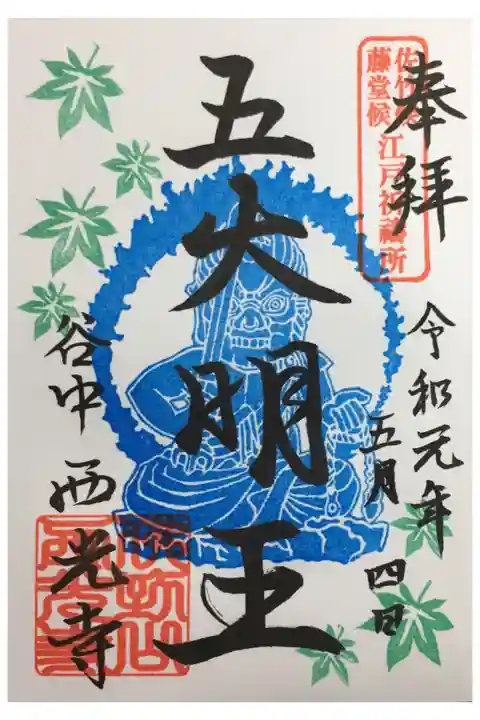 奉拝
佐竹候
藤堂候
江戸祈祷所
令和元年
五月四日
五大明王
谷中西光寺